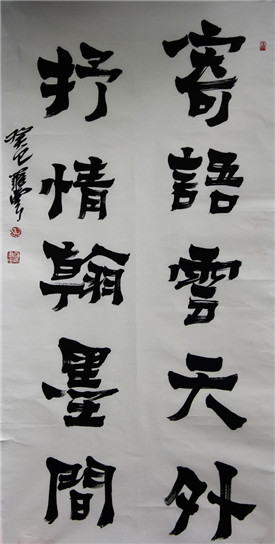 寄語雲天外
抒情翰墨間
癸巳